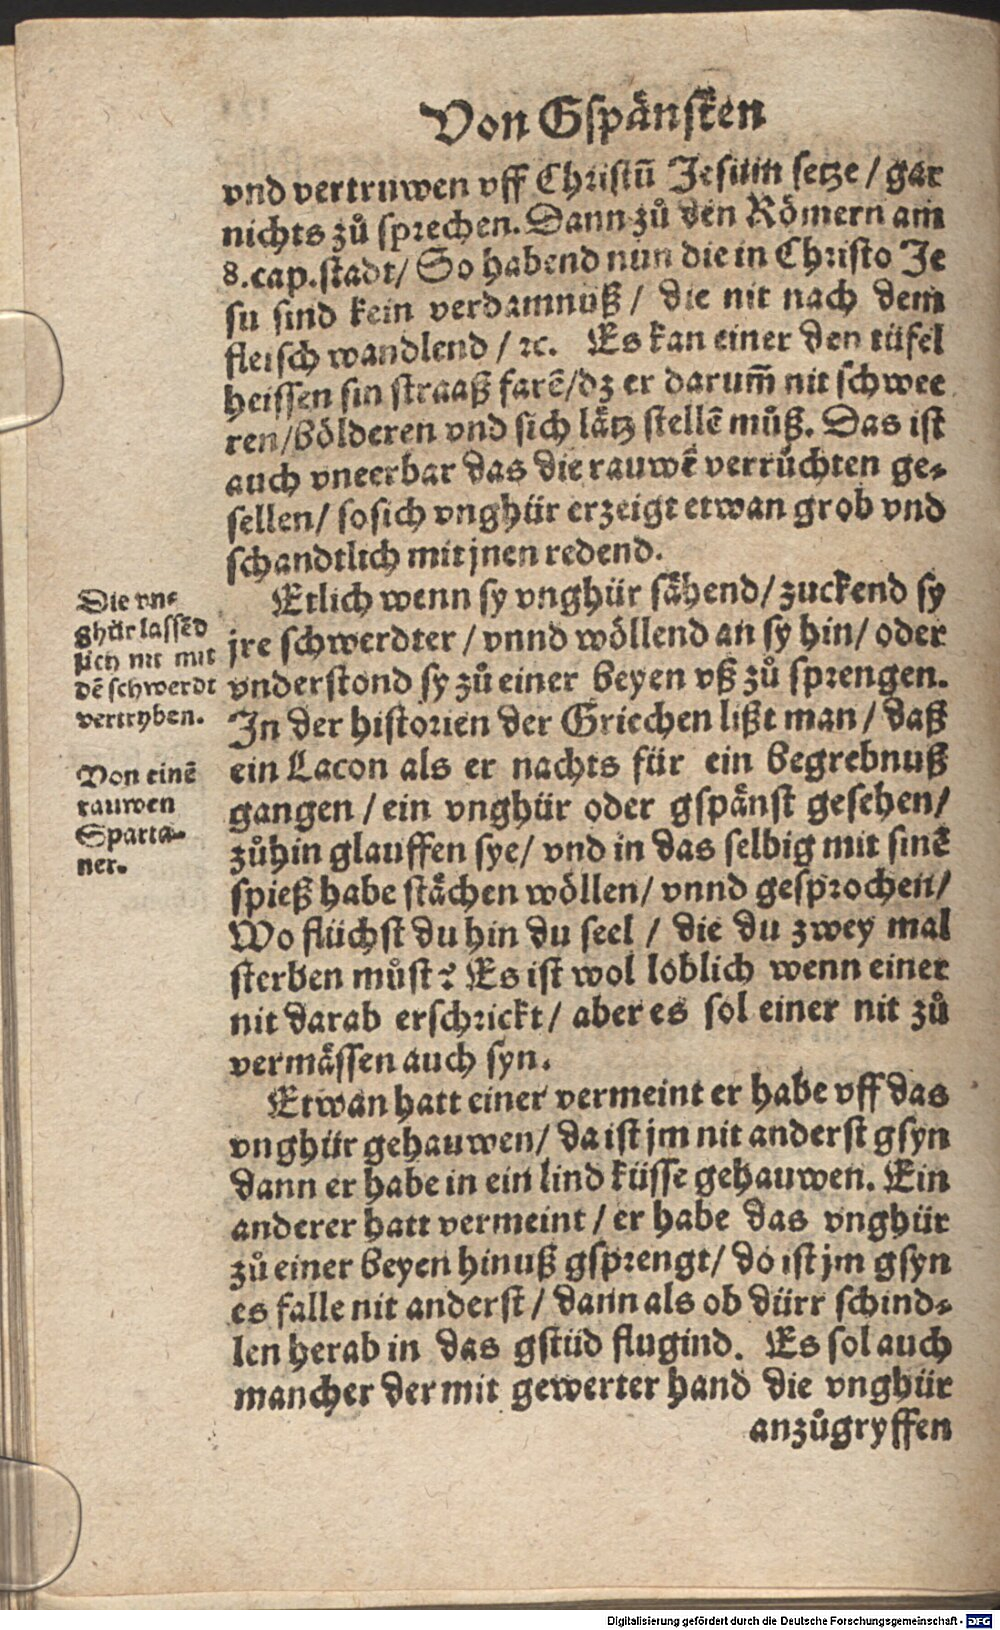 Von Gspånsten
vnd vertruwen vff Christū Jesum setze / gar
nichts zů sprechen. Dann zů den Rômern am
8.cap.stadt/ So habend nun die in Christo Je
su sind kein verdamnuß / die nit nach dem
fleisch wandlend / ꝛc. Es kan einer den tüfel
heissen sin straaß farē/dz er darum̄ nit schwee
ren/bôlderen vnd sich låtz stellē můß. Das ist
auch vneerbar das die rauwē verrůchten ge-
sellen/ so sich vnghür erzeigt etwan grob vnd
schandtlich mit jnen redend.
Etlich wenn sy vnghür såhend/ zuckend sy
jre schwerdter / vnnd wôllend an sy hin/ oder
vnderstond sy zů einer beyen vß zů sprengen.
In der historien der Griechen lißt man / daß
ein Lacon als er nachts für ein begrebnuß
gangen / ein vnghür oder gspånst gesehen/
zůhin glauffen sye/ vnd in das selbig mit sinē
spieß habe ståchen wôllen/ vnnd gesprochen/
Wo flüchst du hin du seel / die du zwey mal
sterben můst? Es ist wol loblich wenn einer
nit darab erschrickt/ aber es sol einer nit zů
vermåssen auch syn.
Etwan hatt einer vermeint er habe vff das
vnghür gehauwen/ da ist jm nit anderst gsyn
dann er habe in ein lind küsse gehauwen. Ein
anderer hatt vermeint / er habe das vnghür
zů einer beyen hinuß gsprengt/ do ist jm gsyn
es falle nit anderst / dann als ob dürr schind-
len herab in das gstüd flugind. Es sol auch
mancher der mit gewerter hand die vnghür
anzůgryffen
Die vn-
ghür lassēd
sich nit mit
dē schwerdt
vertryben.
Von einē
rauwen
Sparta-
ner.
Digitalisierung gefördert durch die Deutsche Forschungsgemeinschaft - DFG